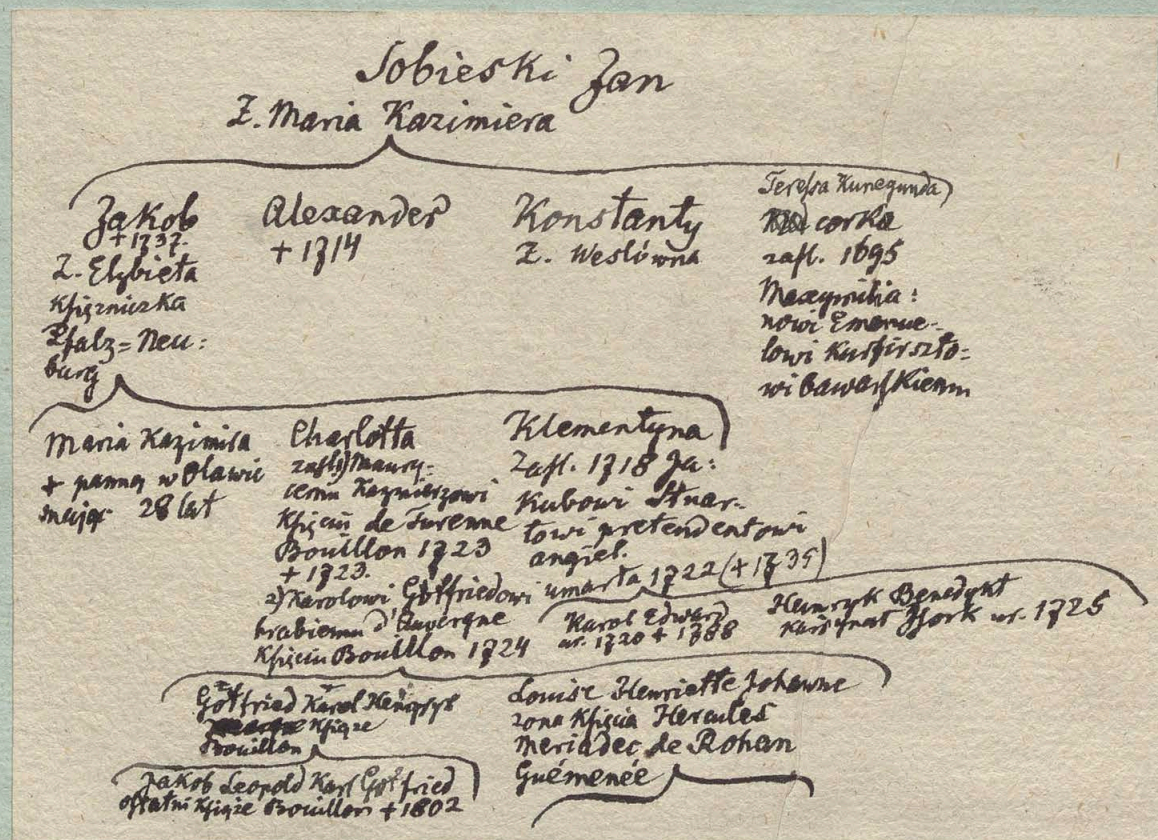 Sobieski Jan
Ż. Maria Kazimiera
Jakob
+ 1737.
Ż. Elżbieta
Księżniczka
Pfalz=Neu:
burg
Alexander
+ 1714
Konstanty
Ż. Weslówna
Teressa Kunegunda
corka
zasl. 1695
Maxymilia:
nowi Emanue-
lowi Kurfirszto=
wi bawarskiemu
Maria Kazimira
+ panną w Oławie
mając 28 lat
Charlotta
zasl. 1) Maury-
cemu Kazimierzowi
Księciu de Turenne
Bouillon 1723
+ 1723.
2) Karolowi Gotfriedowi
hrabiemu d'Auvergne
Księciu Bouillon 1724
Klementyna
Zasl. 1718 Ja:
kubowi Stuar-
towi pretendentowi
angiel.
umarła 1722 (+ 1735)
Karol Edward
ur. 1720 + 1788
Henryk Benedykt
Kardynał York ur. 1725
Gotfried Karol Henryk
Książe
Bouillon
Louise Henriette Johanne
żona Księcia Hercules
Meriadec de Rohan
Guémenée
Jakob Leopold Karl Gotfried
ostatni Książe Bouillon + 1802